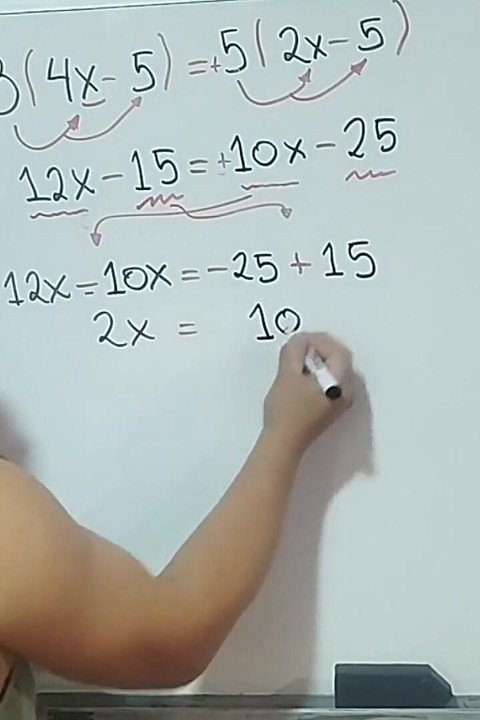 3(4x-5)=+5(2x-5)
12x-15=+10x-25
12x-10x=-25+15
2x = 10